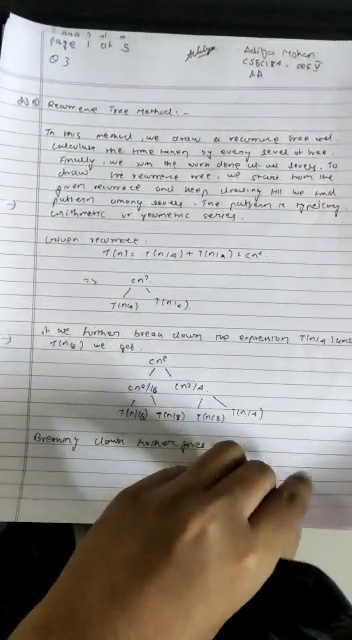 Page 1 of 5
Q3
Aditya Mohan
CSEC184, sec V
AA
Recurrence Tree Method:-
In this method, we draw a recurrence tree and
calculate the time taken by every level of tree.
Finally, we sum the work done at all levels. To
draw the recurrence tree, we start from the
given recurrence and keep drawing till we find
pattern among levels. The pattern is typically
arithmetic or geometric series.
Given recurrence
T(n) = T(n/4) + T(n/2) + cn²
=> cn²
T(n/4) T(n/2)
If we further break down the expression T(n/4) and
T(n/2) we get.
cn²
cn²/16 cn²/4
T(n/16) T(n/8) T(n/8) T(n/4)
Breaking down further gives